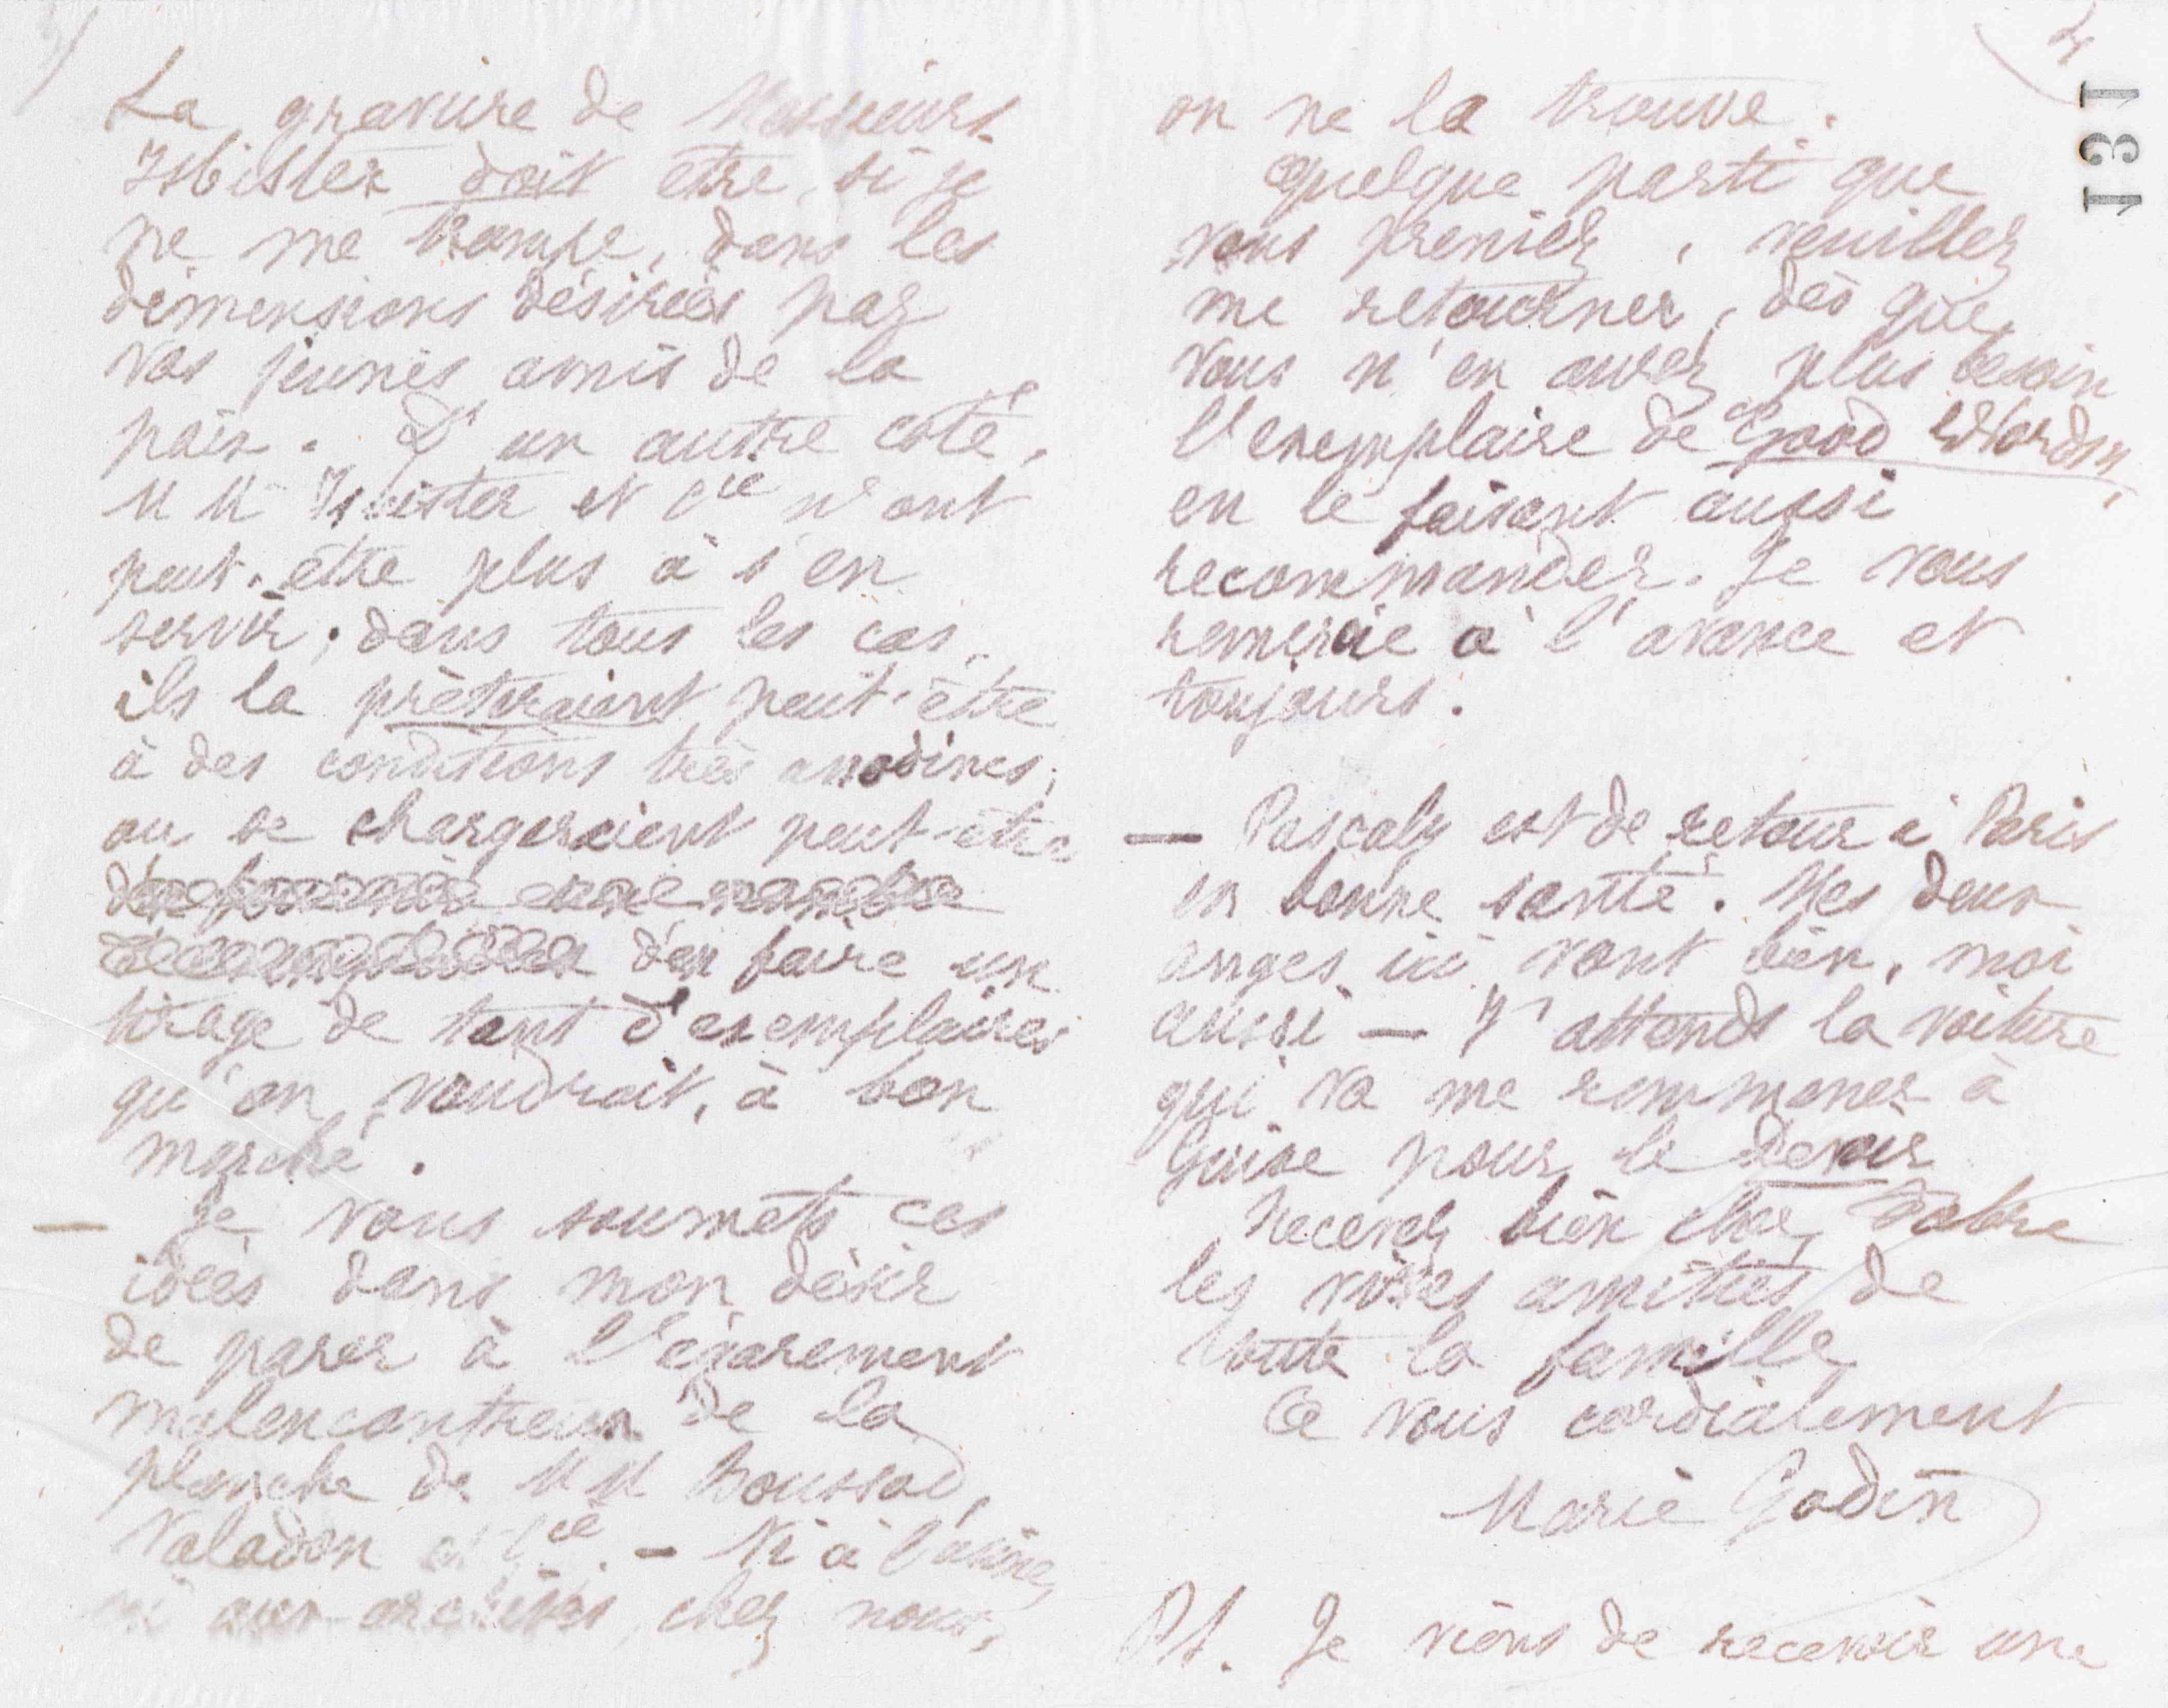 La gravure de Messieurs
Isbister doit être, si je
ne me trompe, dans les
dimensions désirées par
vos jeunes amis de la
paix. D'un autre côté,
MM Isbister et Cie n'ont
peut-être plus à s'en
servir; dans tous les cas,
ils la prêteraient peut-être
à des conditions très anodines;
ou se chargeraient peut-être
d'en faire un
tirage de tant d'exemplaires
qu'on voudrait, à bon
marché.
— Je vous soumets ces
idées dans mon désir
de parer à l'égarement
malencontreux de la
planche de MM Boussod,
Valadon et Cie. — Ni à l'usine,
ni aux archives, chez nous,
4
131
on ne la trouve.
Quelque parti que
vous preniez, veuillez
me retourner, dès que
vous n'en aurez plus besoin
l'exemplaire de Good Words,
en le faisant aussi
recommander. Je vous
remercie à l'avance et
toujours.
— Pascaly est de retour à Paris
en bonne santé. Mes deux
anges ici vont bien, moi
aussi — J'attends la voiture
qui va me remmener à
Guise pour le Devoir
Recevez bien cher Fabre
les vives amitiés de
toute la famille
A vous cordialement
Marie Godin
PS. Je viens de recevoir une